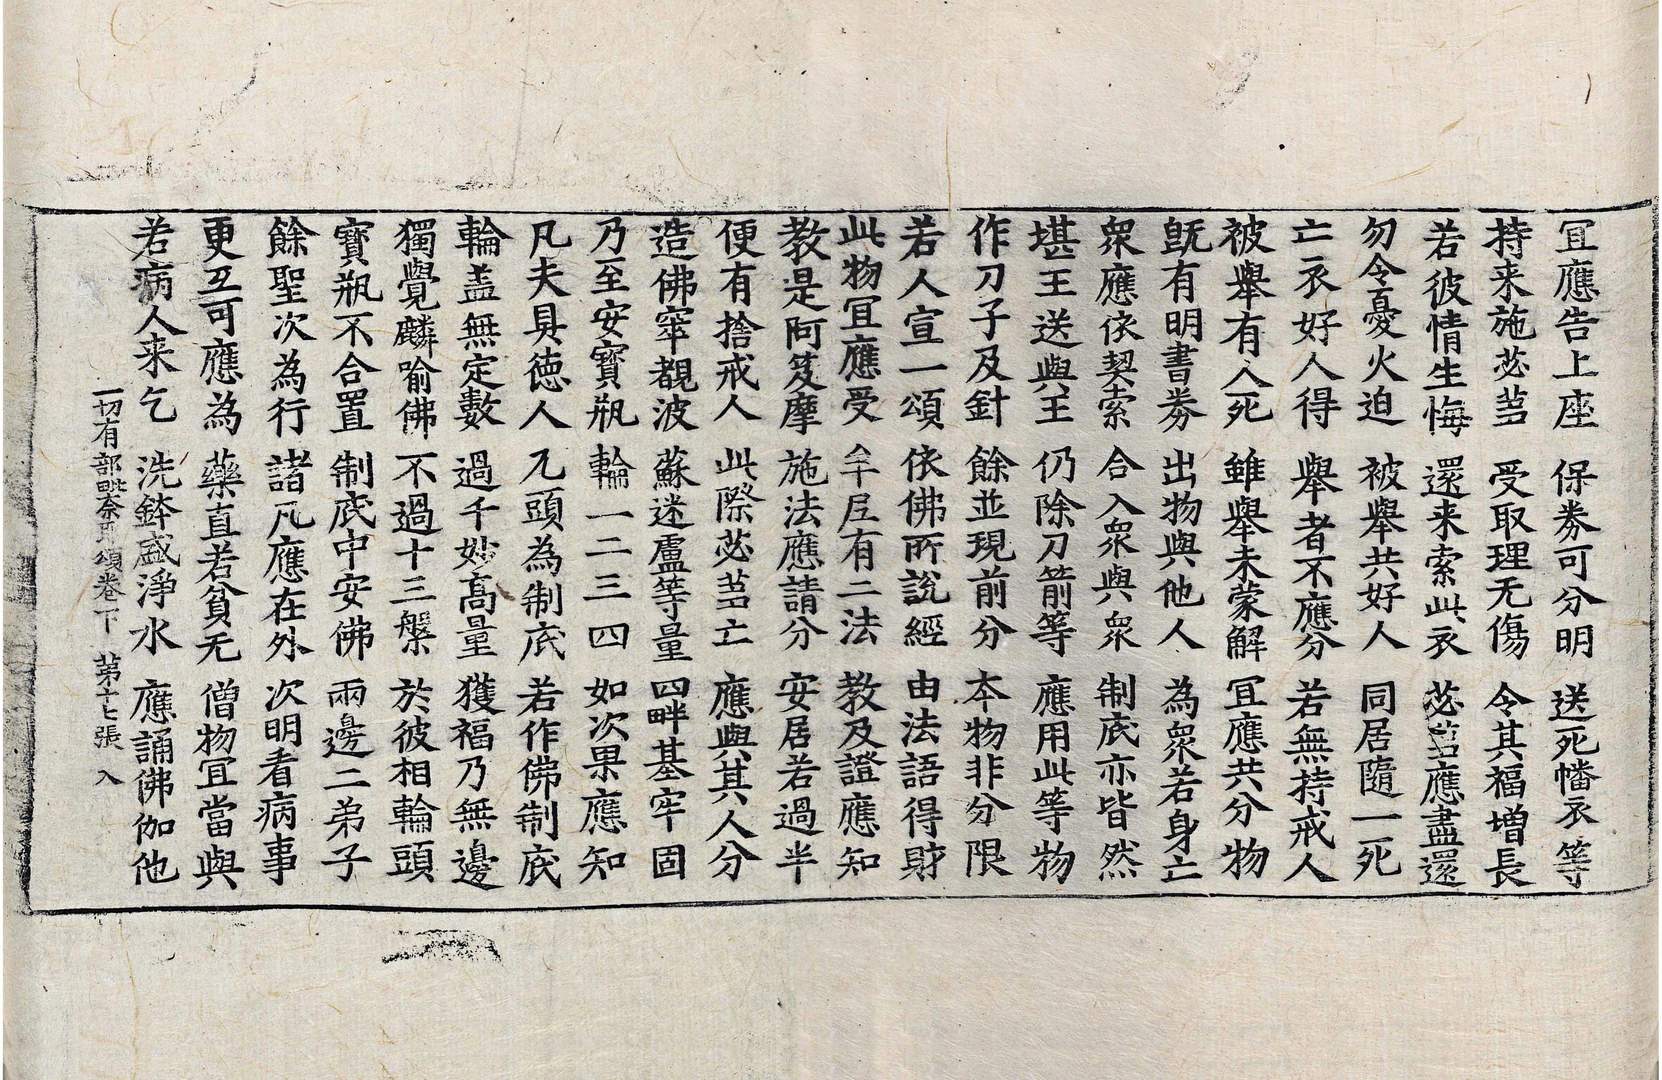 冝應告上座 保劵可分明 送死幡衣等
持来施苾芻 受取理无傷 令其福增長
若彼情生悔 還来索此衣 苾芻應盡還
勿令憂火迫 被舉共好人 同居隨一死
亡衣好人得 舉者不應分 若無持戒人
被舉有人死 雖舉未蒙解 冝應共分物
旣有明書劵 出物與他人 為衆若身亡
衆應依契索 合入衆與衆 制底亦皆然
堪王送與王 仍除刀箭等 應用此等物
作刀子及針 餘並現前分 本物非分限
若人宣一頌 依佛所說經 由法語得財
此物冝應受 牟尼有二法 教及證應知
教是阿笈摩 施法應請分 安居若過半
便有捨戒人 此際苾芻亡 應與其人分
造佛窣覩波 蘇迷盧等量 四畔基牢固
乃至安寶瓶 輪一二三四 如次果應知
凡夫具徳人 兀頭為制底 若作佛制底
輪盖無定數 過千妙髙量 獲福乃無邊
獨覺麟喻佛 不過十三槃 於彼相輪頭
寶瓶不合置 制底中安佛 兩邊二弟子
餘聖次為行 諸凡應在外 次明看病事
更互可應為 藥直若貧无 僧物冝當與
若病人来乞 洗鉢盛淨水 應誦佛伽他
一切有部毗奈耶頌卷下 第十七張 入